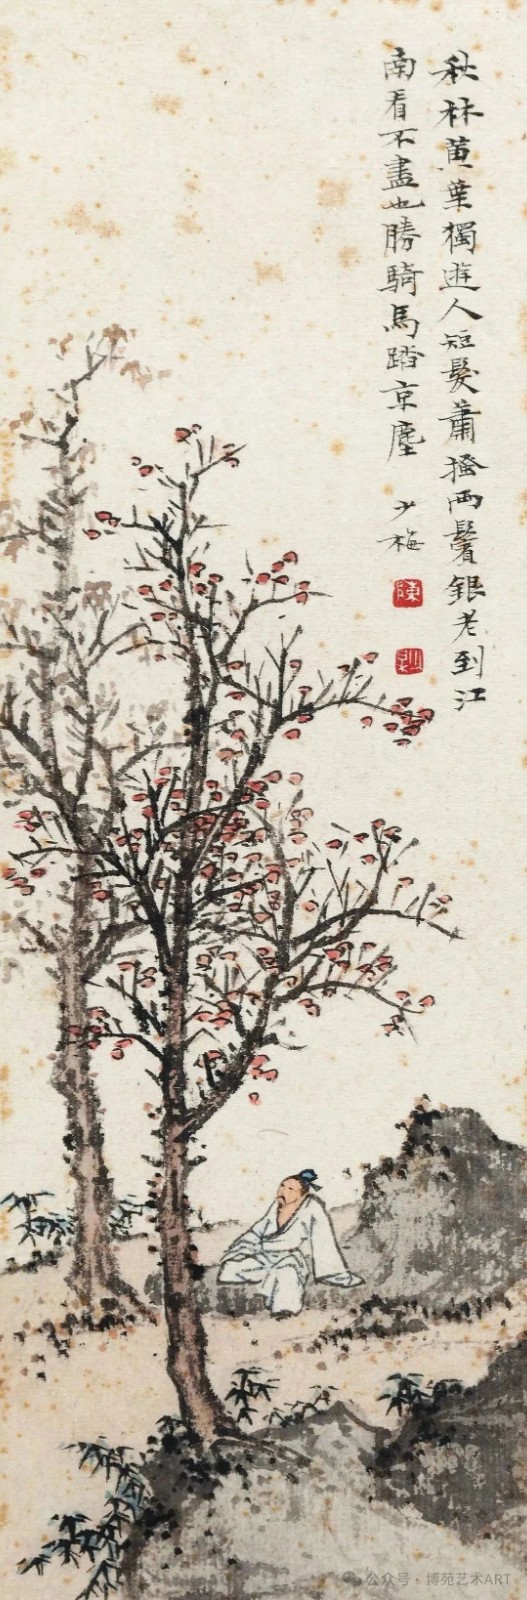 秋林黄葉獨遊人短髮蕭搔両鬢銀老到江
南看不盡也勝騎馬踏京塵
少梅
陳
公众号·博苑艺术ART